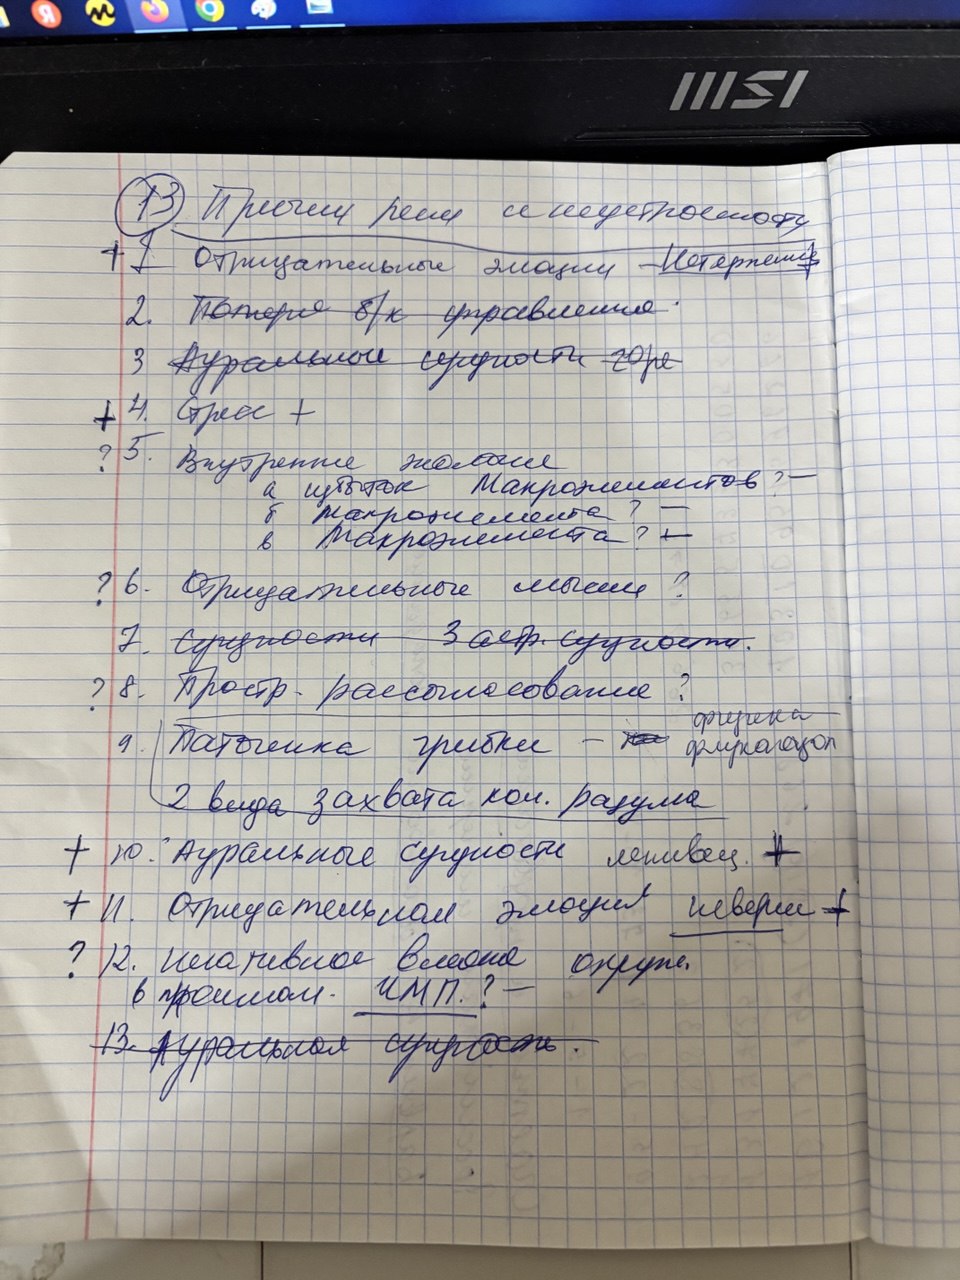 MSI
13 Причин неустроенности
+ 1 Отрицательные эмоции - Нетерпение +
2. Потеря б/к управления.
3 Ауральные сущности горе
+ 4. Стресс +
? 5. Внутренние
а избыток Макроэлементов ? -
б макроэлемента ? -
в Макроэлемента ? +
? 6. Отрицательные мысли ?
7. Сущности 3 астр. сущности.
? 8. Простр. рассогласование ?
9. грибки - физика
2 вида захвата кол. разума
+ 10. Ауральные сущности ленивец. +
+ 11. Отрицательная эмоция неверие +
? 12. Негативное окруж.
в прошлом. ? -
13. Ауральная сущность.